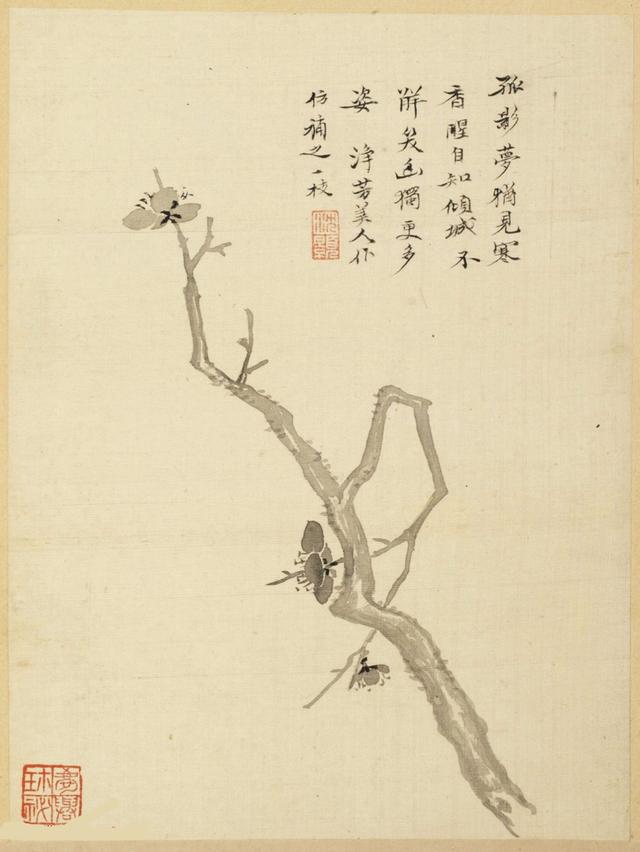 孤影夢猶見寒
香醒自知傾城不
觧笑幽獨更多
姿　淨芳美人作
仿補之一枝